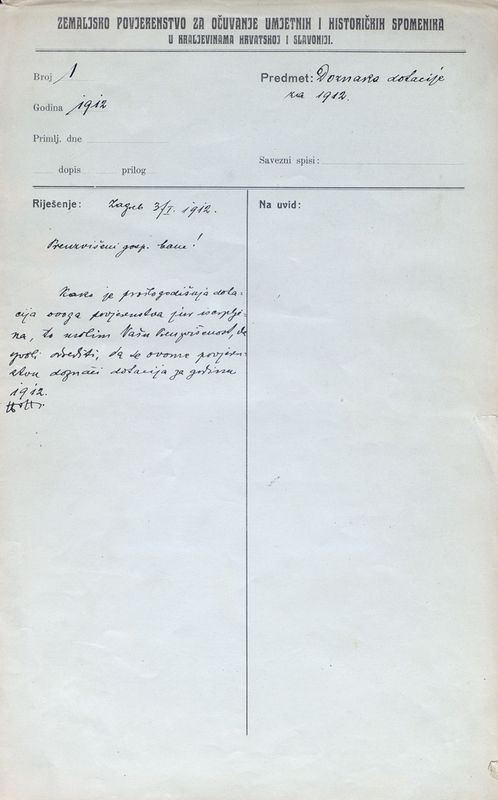 ZEMALJSKO POVJERENSTVO ZA OČUVANJE UMJETNIH I HISTORIČKIH SPOMENIKA
U KRALJEVINAMA HRVATSKOJ I SLAVONIJI.
Broj 1
Godina 1912
Primlj. dne
dopis prilog
Predmet: Doznaka dotacije
za 1912.
Savezni spisi:
Riješenje: Zagreb 3/I. 1912.
Preuzvišeni gosp. bane!
Kako je prošlogodišnja dota-
cija ovoga povjerenstva jur iscrplje-
na, to molim Vašu Preuzvišenost, da
izvoli odrediti, da se ovome povjeren-
stvu doznači dotacija za godinu
1912.
Na uvid: